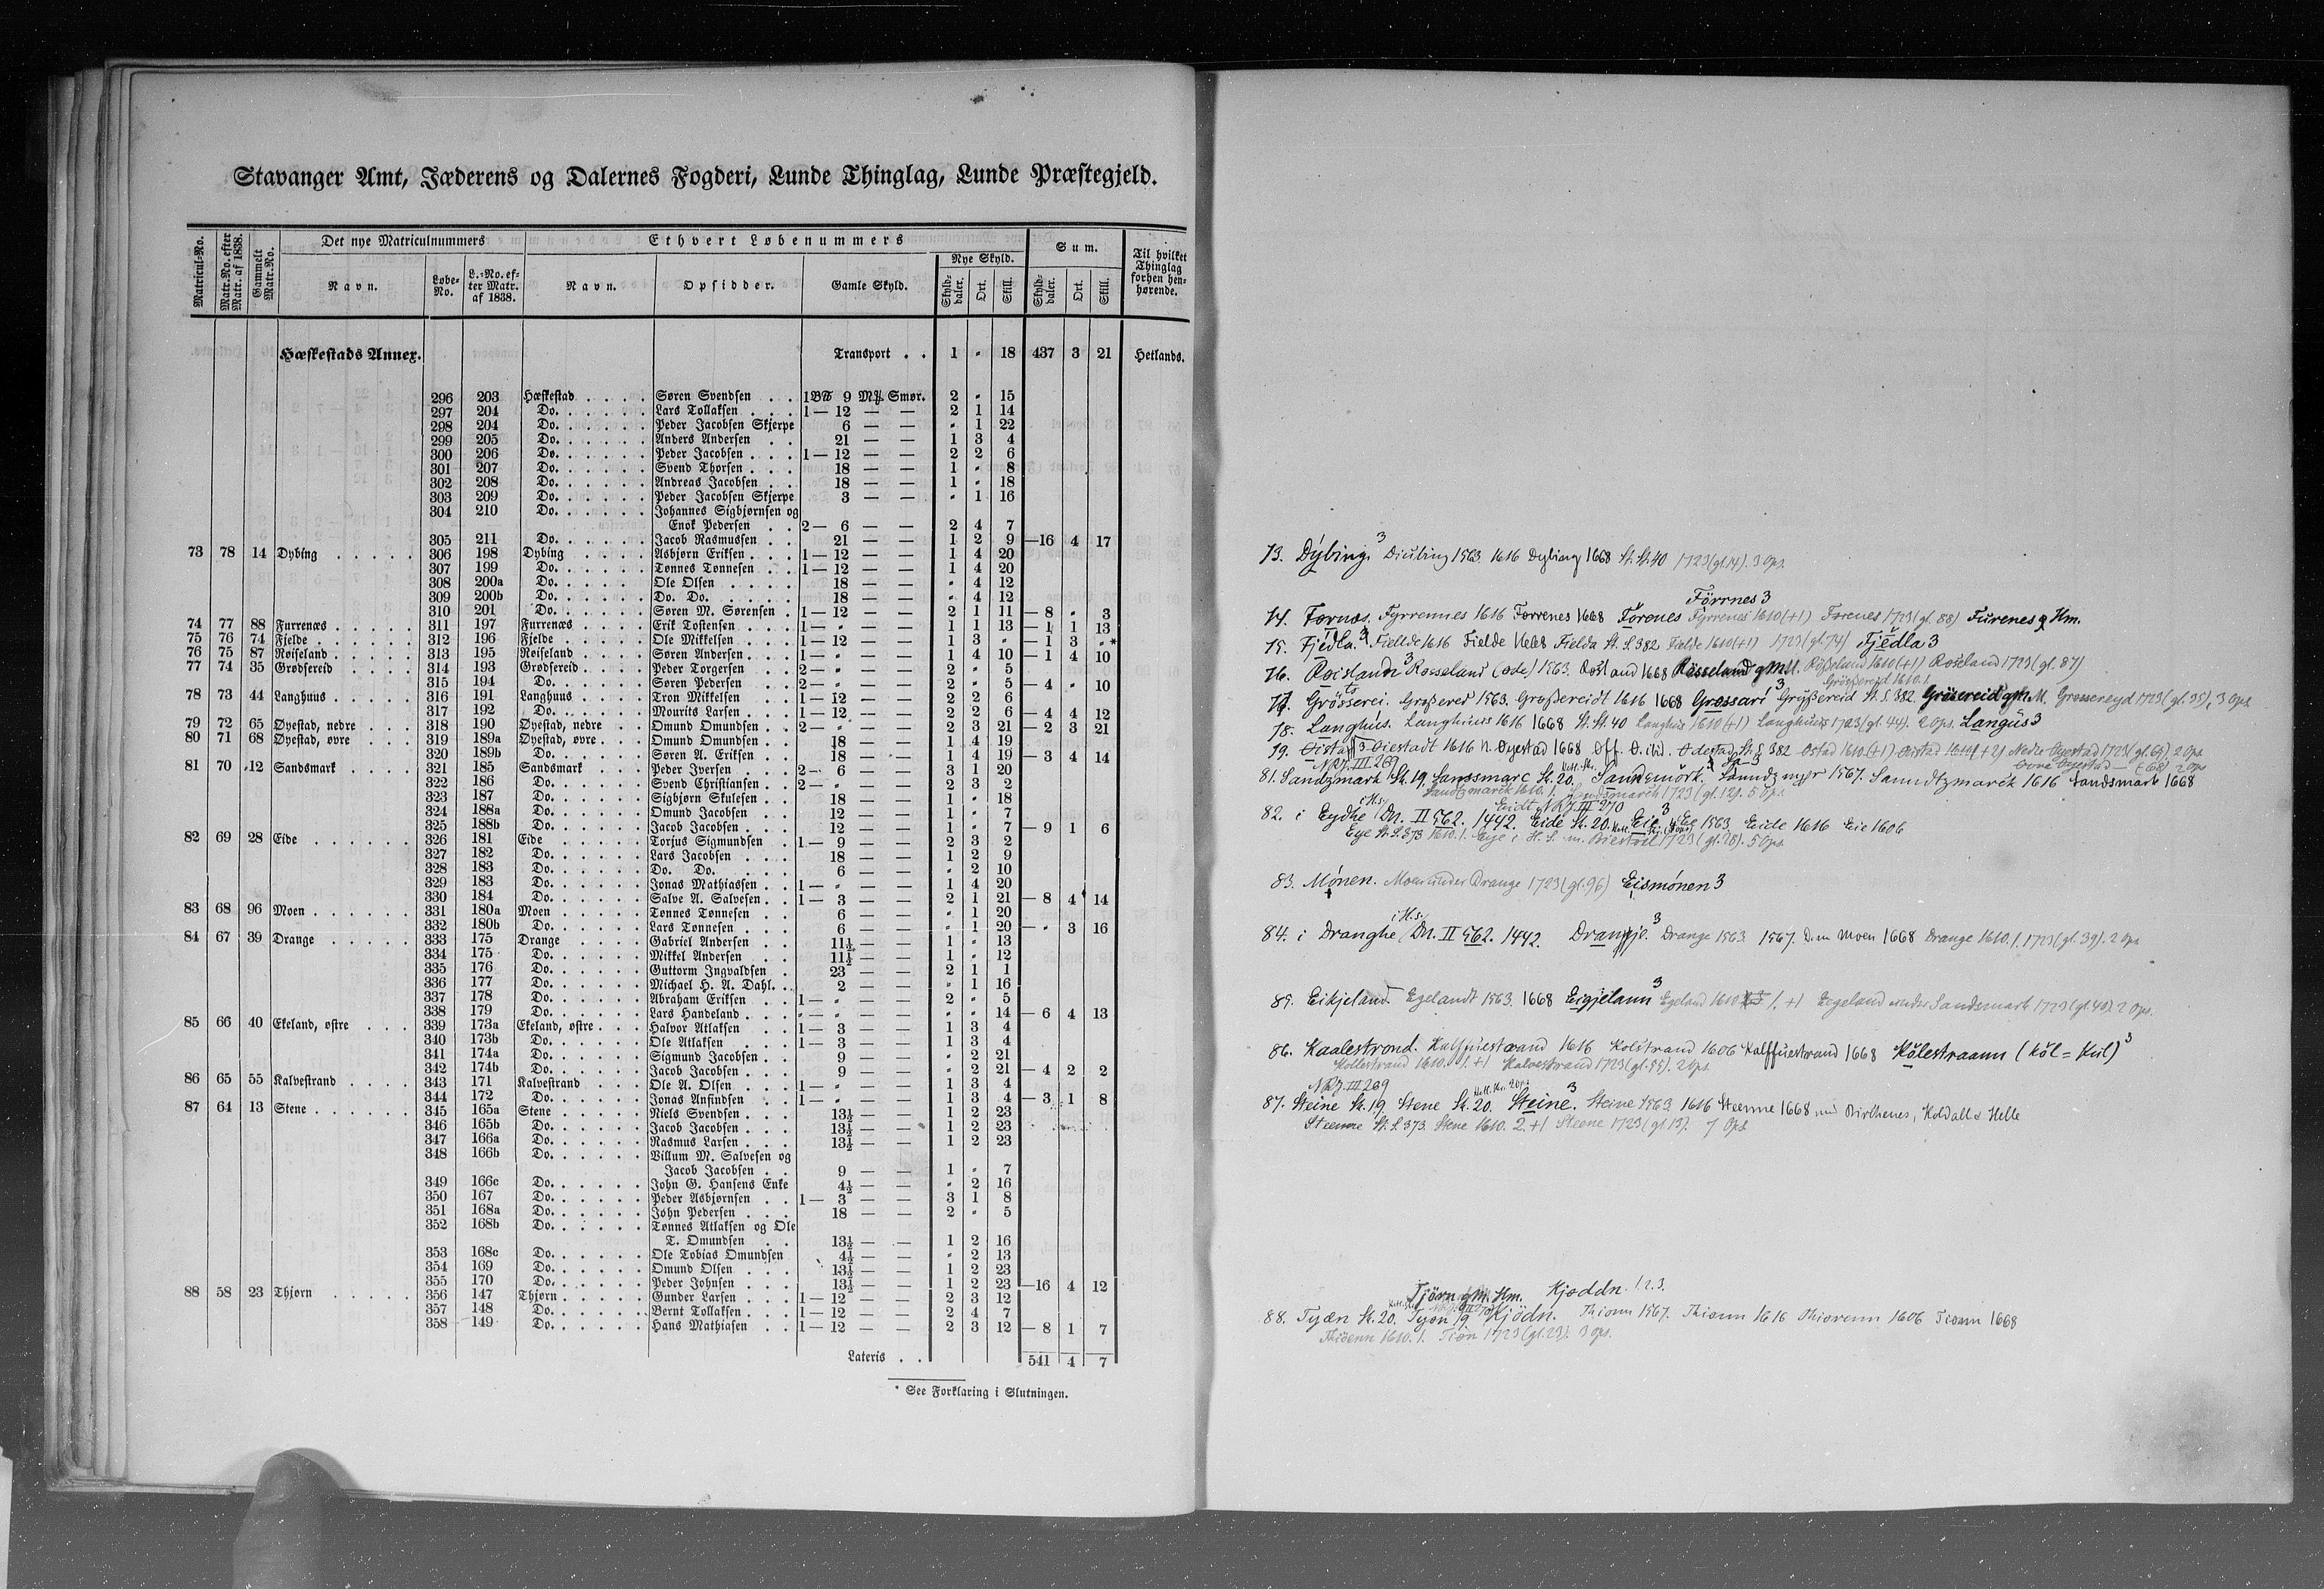 Stavanger Amt, Jæderens og Dalernes Fogderi, Lunde Thinglag, Lunde Præstegjeld.
Matricul-No. Matr.No. efter Matr. af 1838. Gammelt Matr.No. Det nye Matriculnummers Ethvert Løbenummers Sum. Til hvilket Thinglag forhen henhørende.
Navn. Løbe-No. L.-No. efter Matr. af 1838. Navn. Opsidder. Gamle Skyld. Nye Skyld. Skylddaler. Ort. Skill. Skylddaler. Ort. Skill.
Hæskestads Annex. Transport . . 1 " 18 437 3 21 Hetlands.
296 203 Hæskestad . . . . Søren Svendsen . . 1 B℔ 9 Mk. Smør. 2 " 15
297 204 Do. . . . . . Lars Tollaksen . . . 1 — 12 — — 2 1 14
298 204 Do. . . . . . Peder Jacobsen Skjerpe 6 — — " 1 22
299 205 Do. . . . . . Anders Andersen . . 21 — — 1 3 4
300 206 Do. . . . . . Peder Jacobsen . . . 1 — 12 — — 2 2 6
301 207 Do. . . . . . Svend Thorsen . . . 18 — — 1 " 8
302 208 Do. . . . . . Andreas Jacobsen . . 18 — — 1 " 18
303 209 Do. . . . . . Peder Jacobsen Skjerpe 3 — — " 1 16
304 210 Do. . . . . . Johannes Sigbjørnsen og
Enok Pedersen . . 2 — 6 — — 2 4 7
305 211 Do. . . . . . Jacob Rasmussen . . 21 — — 1 2 9 —16 4 17
73 78 14 Dybing . . . . . 306 198 Dybing . . . . Asbjørn Eriksen . . . 1 — 12 — — 1 4 20
307 199 Do. . . . . . Tønnes Tønnesen . . 1 — 12 — — 1 4 20
308 200a Do. . . . . . Ole Olsen . . . . 18 — — " 4 12
309 200b Do. . . . . . Do. Do. . . . . 18 — — " 4 12
310 201 Do. . . . . . Søren M. Sørensen . 1 — 12 — — 2 1 11 — 8 " 3
74 77 88 Furrenæs . . . . . 311 197 Furrenæs . . . . Erik Tostensen . . . 1 — " — — 1 1 13 — 1 1 13
75 76 74 Fjelde . . . . . . 312 196 Fjelde . . . . . Ole Mikkelsen . . . 1 — 12 — — 1 3 " — 1 3 "*
76 75 87 Røiseland . . . . . 313 195 Røiseland . . . . Søren Andersen . . . 1 — " — — 1 4 10 — 1 4 10
77 74 35 Grødsereid . . . . 314 193 Grødsereid . . . . Peder Torgersen . . 2 — " — — 2 " 5
315 194 Do. . . . . . Søren Pedersen . . 2 — " — — 2 " 5 — 4 " 10
78 73 44 Langhuus . . . . . 316 191 Langhuus . . . . Tron Mikkelsen . . 1 — 12 — — 2 2 6
317 192 Do. . . . . . Mourits Larsen . . . 1 — 12 — — 2 2 6 — 4 4 12
79 72 65 Øyestad, nedre . . . 318 190 Øyestad, nedre . . Omund Omundsen . . 2 — " — — 2 3 21 — 2 3 21
80 71 68 Øyestad, øvre . . . 319 189a Øyestad, øvre . . . Omund Omundsen . . 18 — — 1 4 19
320 189b Do. . . . . . Søren A. Eriksen . . 18 — — 1 4 19 — 3 4 14
81 70 12 Sandsmark . . . . 321 185 Sandsmark . . . . Peder Iversen . . . 2 — 6 — — 3 1 20
322 186 Do. . . . . . Svend Christiansen . . 2 — " — — 2 3 2
323 187 Do. . . . . . Sigbjørn Skulesen . . 18 — — 1 " 18
324 188a Do. . . . . . Omund Jacobsen . . 12 — — 1 " 7
325 188b Do. . . . . . Jacob Jacobsen . . . 12 — — 1 " 7 — 9 1 6
82 69 28 Eide . . . . . . 326 181 Eide . . . . . Torjus Sigmundsen . . 1 — 9 — — 2 3 2
327 182 Do. . . . . . Lars Jacobsen . . . 18 — — 1 2 9
328 183 Do. . . . . . Do. Do. . . . 6 — — " 2 10
329 183 Do. . . . . . Jonas Mathiassen . . 1 — " — — 1 4 20
330 184 Do. . . . . . Salve A. Salvesen . . 1 — 3 — — 2 1 21 — 8 4 14
83 68 96 Moen . . . . . . 331 180a Moen . . . . . Tønnes Tønnesen . . 6 — — " 1 20
332 180b Do. . . . . . Lars Tønnesen . . . 6 — — " 1 20 — " 3 16
84 67 39 Drange . . . . . 333 175 Drange . . . . Gabriel Andersen . . 11½ — — 1 " 13
334 175 Do. . . . . . Mikkel Andersen . . 11½ — — 1 " 12
335 176 Do. . . . . . Guttorm Ingvaldsen . 23 — — 2 1 1
336 177 Do. . . . . . Michael H. A. Dahl . . 2 — — " 1 16
337 178 Do. . . . . . Abraham Eriksen . . 1 — " — — 2 " 5
338 179 Do. . . . . . Lars Handeland . . . " — " — — " " 14 — 6 4 13
85 66 40 Ekeland, østre . . . 339 173a Ekeland, østre . . . Halvor Atlaksen . . 1 — 3 — — 1 3 4
340 173b Do. . . . . . Ole Atlaksen . . . 1 — 3 — — 1 3 4
341 174a Do. . . . . . Sigmund Jacobsen . . 9 — — " 2 21
342 174b Do. . . . . . Jacob Jacobsen . . . 9 — — " 2 21 — 4 2 2
86 65 55 Kalvestrand . . . . 343 171 Kalvestrand . . . Ole A. Olsen . . . 1 — " — — 1 3 4
344 172 Do. . . . . . Jonas Anfindsen . . 1 — " — — 1 3 4 — 3 1 8
87 64 13 Stene . . . . . . 345 165a Stene . . . . . Niels Svendsen . . . 13½ — — 1 2 23
346 165b Do. . . . . . Jacob Jacobsen . . . 13½ — — 1 2 23
347 166a Do. . . . . . Rasmus Larsen . . . 13½ — — 1 2 23
348 166b Do. . . . . . Villum M. Salvesen og
Jacob Jacobsen . . 9 — — 1 " 7
349 166c Do. . . . . . John G. Hansens Enke 4½ — — " 2 16
350 167 Do. . . . . . Peder Asbjørnsen . . 1 — 3 — — 3 1 8
351 168a Do. . . . . . John Pedersen . . . 18 — — 2 " 5
352 168b Do. . . . . . Tønnes Atlaksen og Ole
T. Omundsen . . 13½ — — 1 2 16
353 168c Do. . . . . . Ole Tobias Omundsen 4½ — — " 2 13
354 169 Do. . . . . . Omund Olsen . . . 13½ — — 1 2 23
355 170 Do. . . . . . Peder Johnsen . . . 13½ — — 1 2 23 —16 4 12
88 58 23 Thjørn . . . . . 356 147 Thjørn . . . . . Gunder Larsen . . . 1 — 12 — — 2 3 12
357 148 Do. . . . . . Bernt Tollaksen . . . 1 — 12 — — 2 4 7
358 149 Do. . . . . . Hans Mathiasen . . 1 — 12 — — 2 3 12 — 8 1 7
Lateris . . 541 4 7
* See Forklaring i Slutningen.
73. Dýbing. 3 Diubing 1563. 1616 Dybing 1668 St. St. 40 1723 (gl. 14). 3 Ops.
Förrnes 3
74. Fornæs. Fyrrennes 1616 Forrenes 1668 Forenes Fyrrenes 1610 (+1) Forenes 1723 (gl. 88) Furenes g Hm.
75. Fjedla. 3 Fiellde 1616 Fielde 1668 Fielda St. S. 382 Fielde 1610 (+1) 1723 (gl. 74) Fjedla 3
76. Roislann 3 Rosseland (øde) 1563. Rosland 1668 Rösseland g M M. Rosseland 1610 (+1) Roseland 1723 (gl. 87)
Grösserei 1610. 1.
77. Grösserei. Grossered 1563. Grossereidt 1616 1668 Grossari 3 Gryssereid St. S. 382. Grösereid g M M. Grosserayd 1723 (gl. 35), 3 Ops.
78. Langhús. Langhuus 1616 1668 St. St. 40 Langhus 1610 (+1) Langhuus 1723 (gl. 44). 2 Ops. Langüs 3
79. Oistad 3 Oiestadt 1616 N. Øyestad 1668 Off. O. ibd. Odestad St. S 382 Ostad 1610 (+1) Nedre Øyestad 1723 (gl. 65) 2 Ops
NRJ. III 269 Øvre Øyestad — (68) 2 Ops
81. Sandzmark Sk. 19. Sandsmarc Sk. 20. Sandsmörk. Sanndzmyr 1567. Sanndtzmarck 1616 Sandsmark 1668
Sandtzmarck 1610. 1. Sandsmarck 1723 (gl. 12). 5 Ops.
i H.s. Eidt NRJ. III 270
82. i Eydhe Dn. II 562. 1442. Eide Sk. 20. Eie 3 Eie 1563 Eide 1616 Eie 1606
Eye St. S. 373 1610. 1. Eye i H. S. 1723 (gl. 28). 5 Ops.
83. Mónen. Moen under Drange 1723 (gl. 96) Eismónen 3
i H.s.
84. i Dranghe Dn. II 562. 1442. Drangje. 3 Drange 1563. 1567. D. m Moen 1668 Drange 1610. 1. 1723 (gl. 39). 2 Ops
85. Eikjeland. Egelandt 1563. 1668 Eigjelann 3 Egeland 1610 1. +1 Eegeland under Sandsmark 1723 (gl. 40). 2 Ops.
86. Kaalestrond. Kalffuestrand 1616 Kolstrand 1606 Kalffuestrand 1668 Kålestraann (kål = Kul) 3
Kollestrand 1610. 1. +1 Kalvestrand 1723 (gl. 55). 2 Ops.
NRJ. III 269
87. Steine Sk. 19 Stene Sk. 20. Steine. 3 Steine 1563. 1616 Steenne 1668 med Birthenes, Koldall & Helle
Steenne St. S. 373. Stene 1610. 2. +1 Steene 1723 (gl. 13). 7 Ops.
Tjörn g M. Hm. Kjoddn. 1. 2. 3.
88. Tyærn Sk. 20. Tyørn 19. Kjödn. Thionn 1567. Thionn 1616 Thiorenn 1606 Tionn 1668
Thiorenn 1610. 1. Tiøn 1723 (gl. 23). 3 Ops.